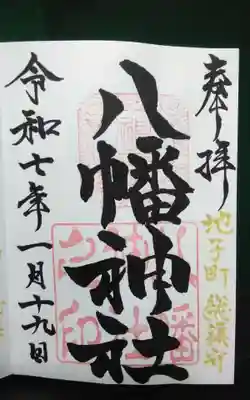 奉拝
地子町総鎮守
八幡神社
令和七年一月十九日